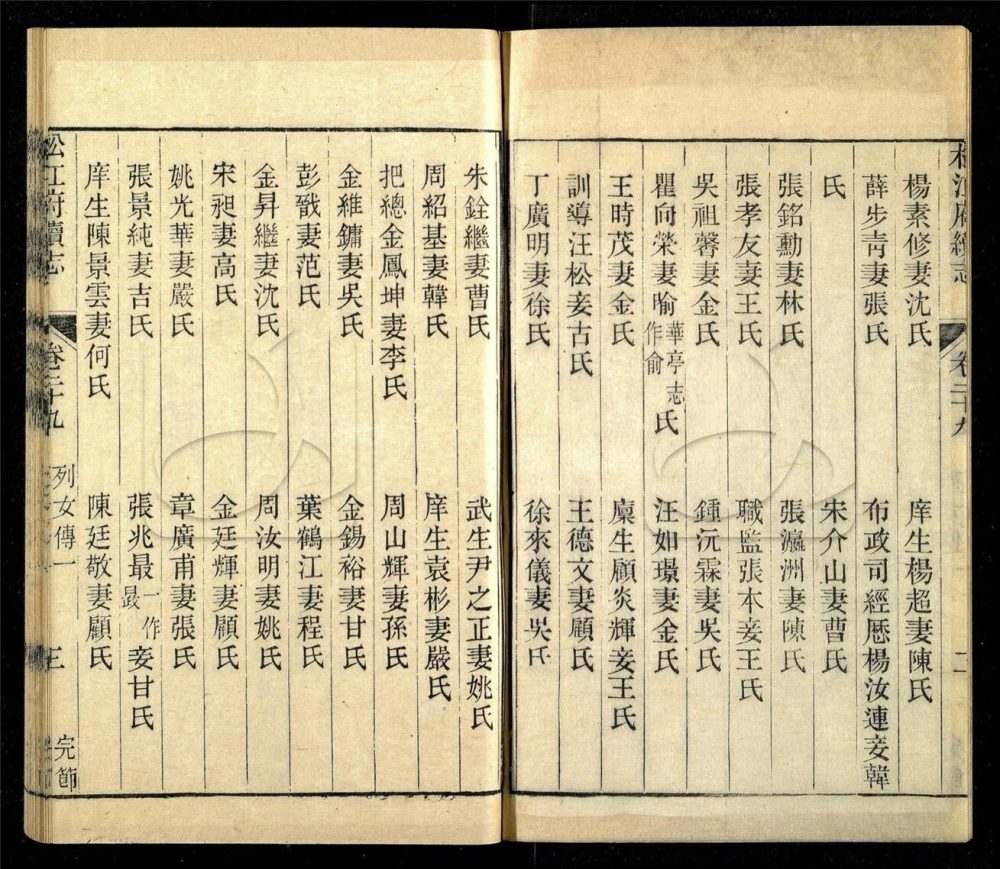 松江府續志
卷二十九
二
楊素修妻沈氏
庠生楊超妻陳氏
薛步靑妻張氏
布政司經歷楊汝連妾韓
氏
宋介山妻曹氏
張銘勳妻林氏
張瀛洲妻陳氏
張孝友妻王氏
職監張本妾王氏
吳祖馨妻金氏
鍾沅霖妻吳氏
瞿向榮妻喻華亭志作俞氏
汪如璟妻金氏
王時茂妻金氏
廩生顧炎輝妾王氏
訓導汪松妾古氏
王德文妻顧氏
丁廣明妻徐氏
徐來儀妻吳氏
朱銓繼妻曹氏
武生尹之正妻姚氏
周紹基妻韓氏
庠生袁彬妻嚴氏
把總金鳳坤妻李氏
周山輝妻孫氏
金維鏞妻吳氏
金錫裕妻甘氏
彭戩妻范氏
葉鶴江妻程氏
金昇繼妻沈氏
周汝明妻姚氏
宋昶妻高氏
金廷輝妻顧氏
姚光華妻嚴氏
章廣甫妻張氏
張景純妻吉氏
張兆最一作晸妾甘氏
庠生陳景雲妻何氏
陳廷敬妻顧氏
松江府續志
卷二十九
列女傳一
三
完節